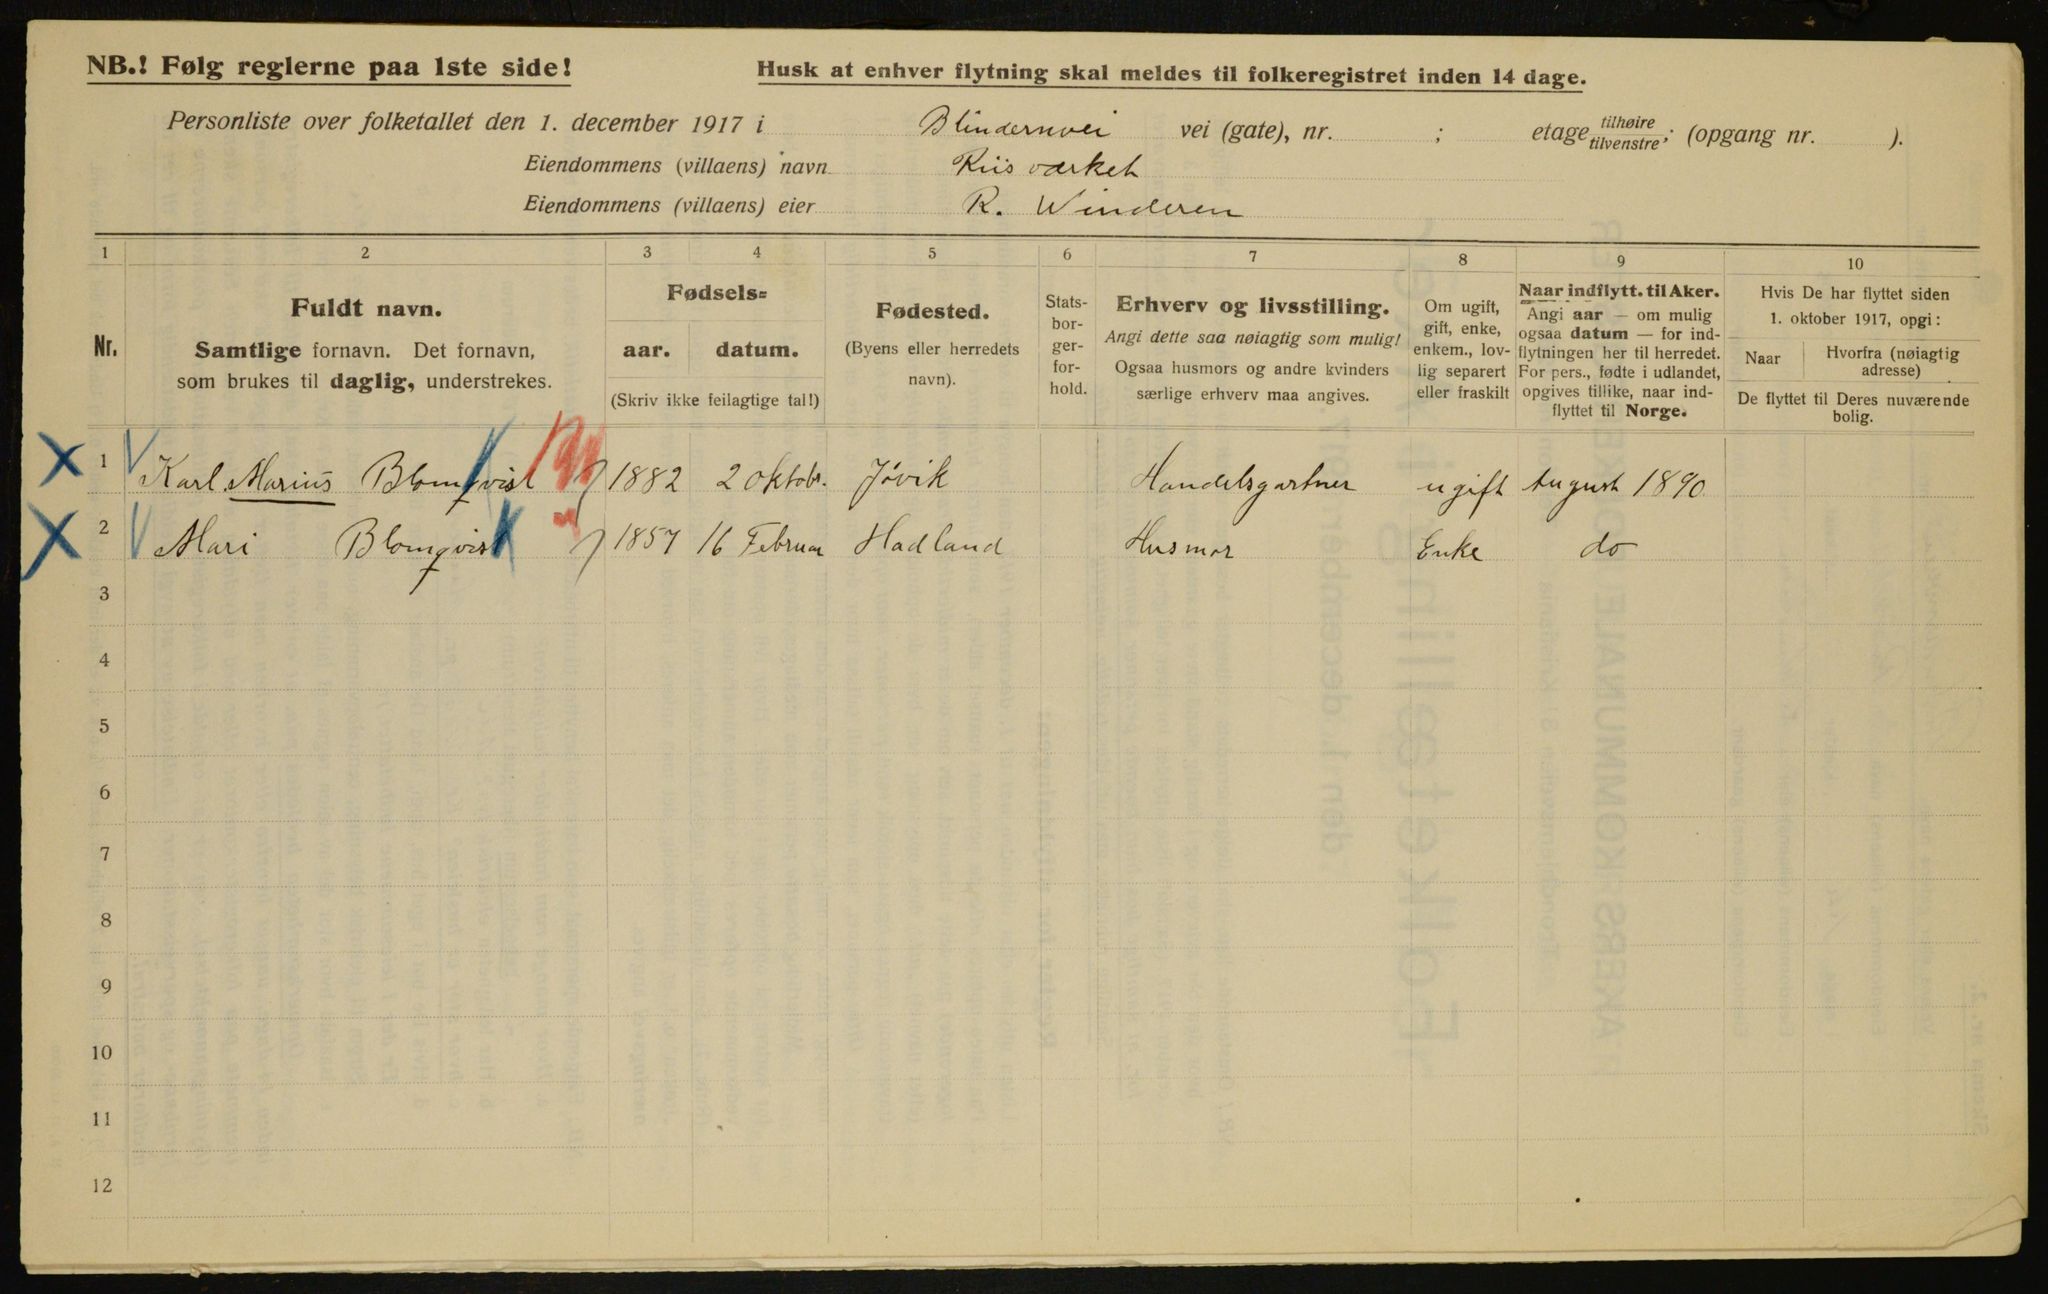 NB.! Følg reglerne paa 1ste side!
Husk at enhver flytning skal meldes til folkeregistret inden 14 dage.
Personliste over folketallet den 1. december 1917 i Blindernvei vei (gate), nr. ; etage tilhøire tilvenstre; (opgang nr. ).
Eiendommens (villaens) navn Riisværket
Eiendommens (villaens) eier R. Winderen
1 2 3 4 5 6 7 8 9 10
Nr.
Fuldt navn.
Samtlige fornavn. Det fornavn,
som brukes til daglig, understrekes.
Fødsels=
aar. datum.
(Skriv ikke feilagtige tal!)
Fødested.
(Byens eller herredets
navn).
Stats-
bor-
ger-
for-
hold.
Erhverv og livsstilling.
Angi dette saa nøiagtig som mulig!
Ogsaa husmors og andre kvinders
særlige erhverv maa angives.
Om ugift,
gift, enke,
enkem., lov-
lig separert
eller fraskilt
Naar indflytt. til Aker.
Angi aar — om mulig
ogsaa datum — for ind-
flytningen her til herredet.
For pers., fødte i udlandet,
opgives tillike, naar ind-
flyttet til Norge.
Hvis De har flyttet siden
1. oktober 1917, opgi:
Naar
Hvorfra (nøiagtig
adresse)
De flyttet til Deres nuværende
bolig.
1 Karl Marius Blomqvist 1882 2 Oktobr. Jövik Handelsgartner ugift August 1890
2 Mari Blomqvist 1857 16 Februar Hadland Husmor Enke do
3
4
5
6
7
8
9
10
11
12